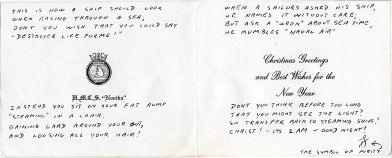 THIS IS HOW A SHIP SHOULD LOOK
WHEN RACING THROUGH A SEA,
DON'T YOU WISH THAT YOU COULD SAY
-DESTROYER LIFE FORME!"
H.M.C.S. "Nootka"
INSTEAD YOU SIT ON YOUR FAT RUMP
"STEAMING" IN A CHAIR.
GAINING LARD AROUND YOUR GUT,
AND LOOSING ALL YOUR HAIR!
WHEN A SAILORS ASKED HIS SHIP,
HE NAMES IT WITHOUT CARE;
BUT ASK A ABOUT SEA TIME,
HE MUMBLES "NAVAL AIR"
Christmas Greetings
and Best Wishes for the
New Year
DON'T YOU THINK BEFORE TOO LONG
THAT YOU MIGHT SEE THE LIGHT?
SO TRANSFER BACK TO STEAMING SHIPS,
CHRIST! - ITS 2 AM - GOOD NIGHT!
THE SYMBOL OF PURITY